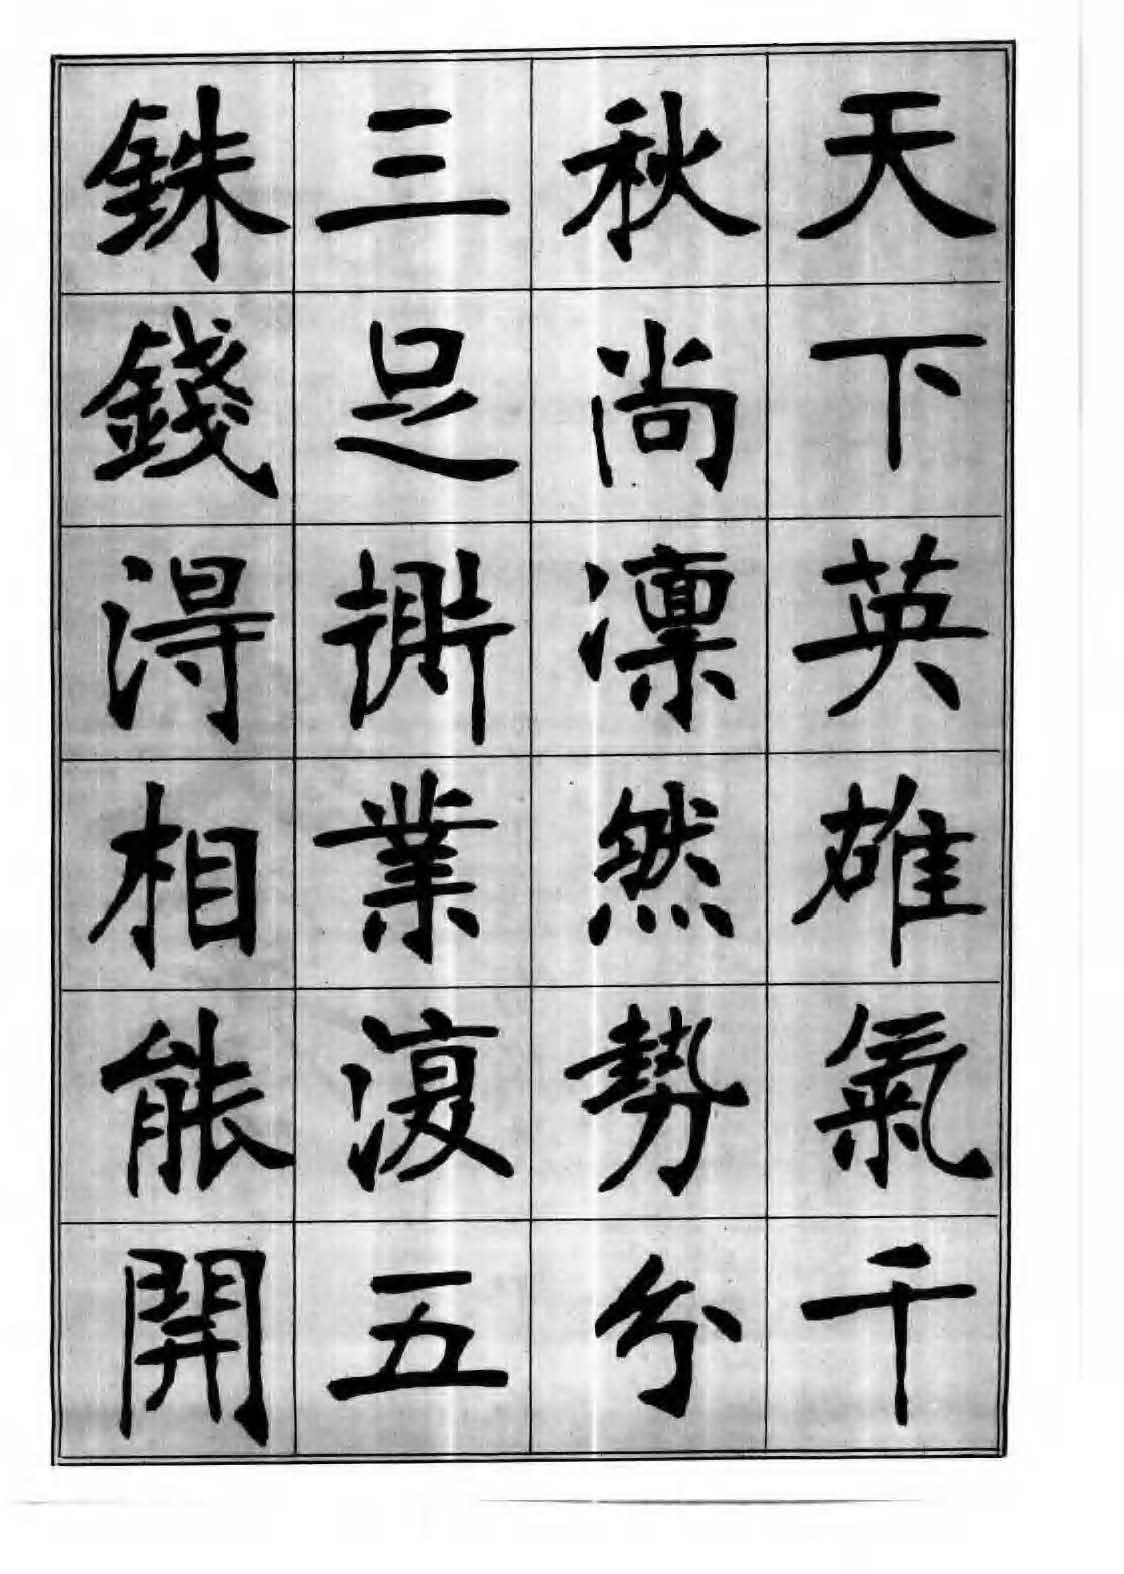 天下英雄氣千
秋尚凛然勢分
三足鼎業復五
銖錢得相能開